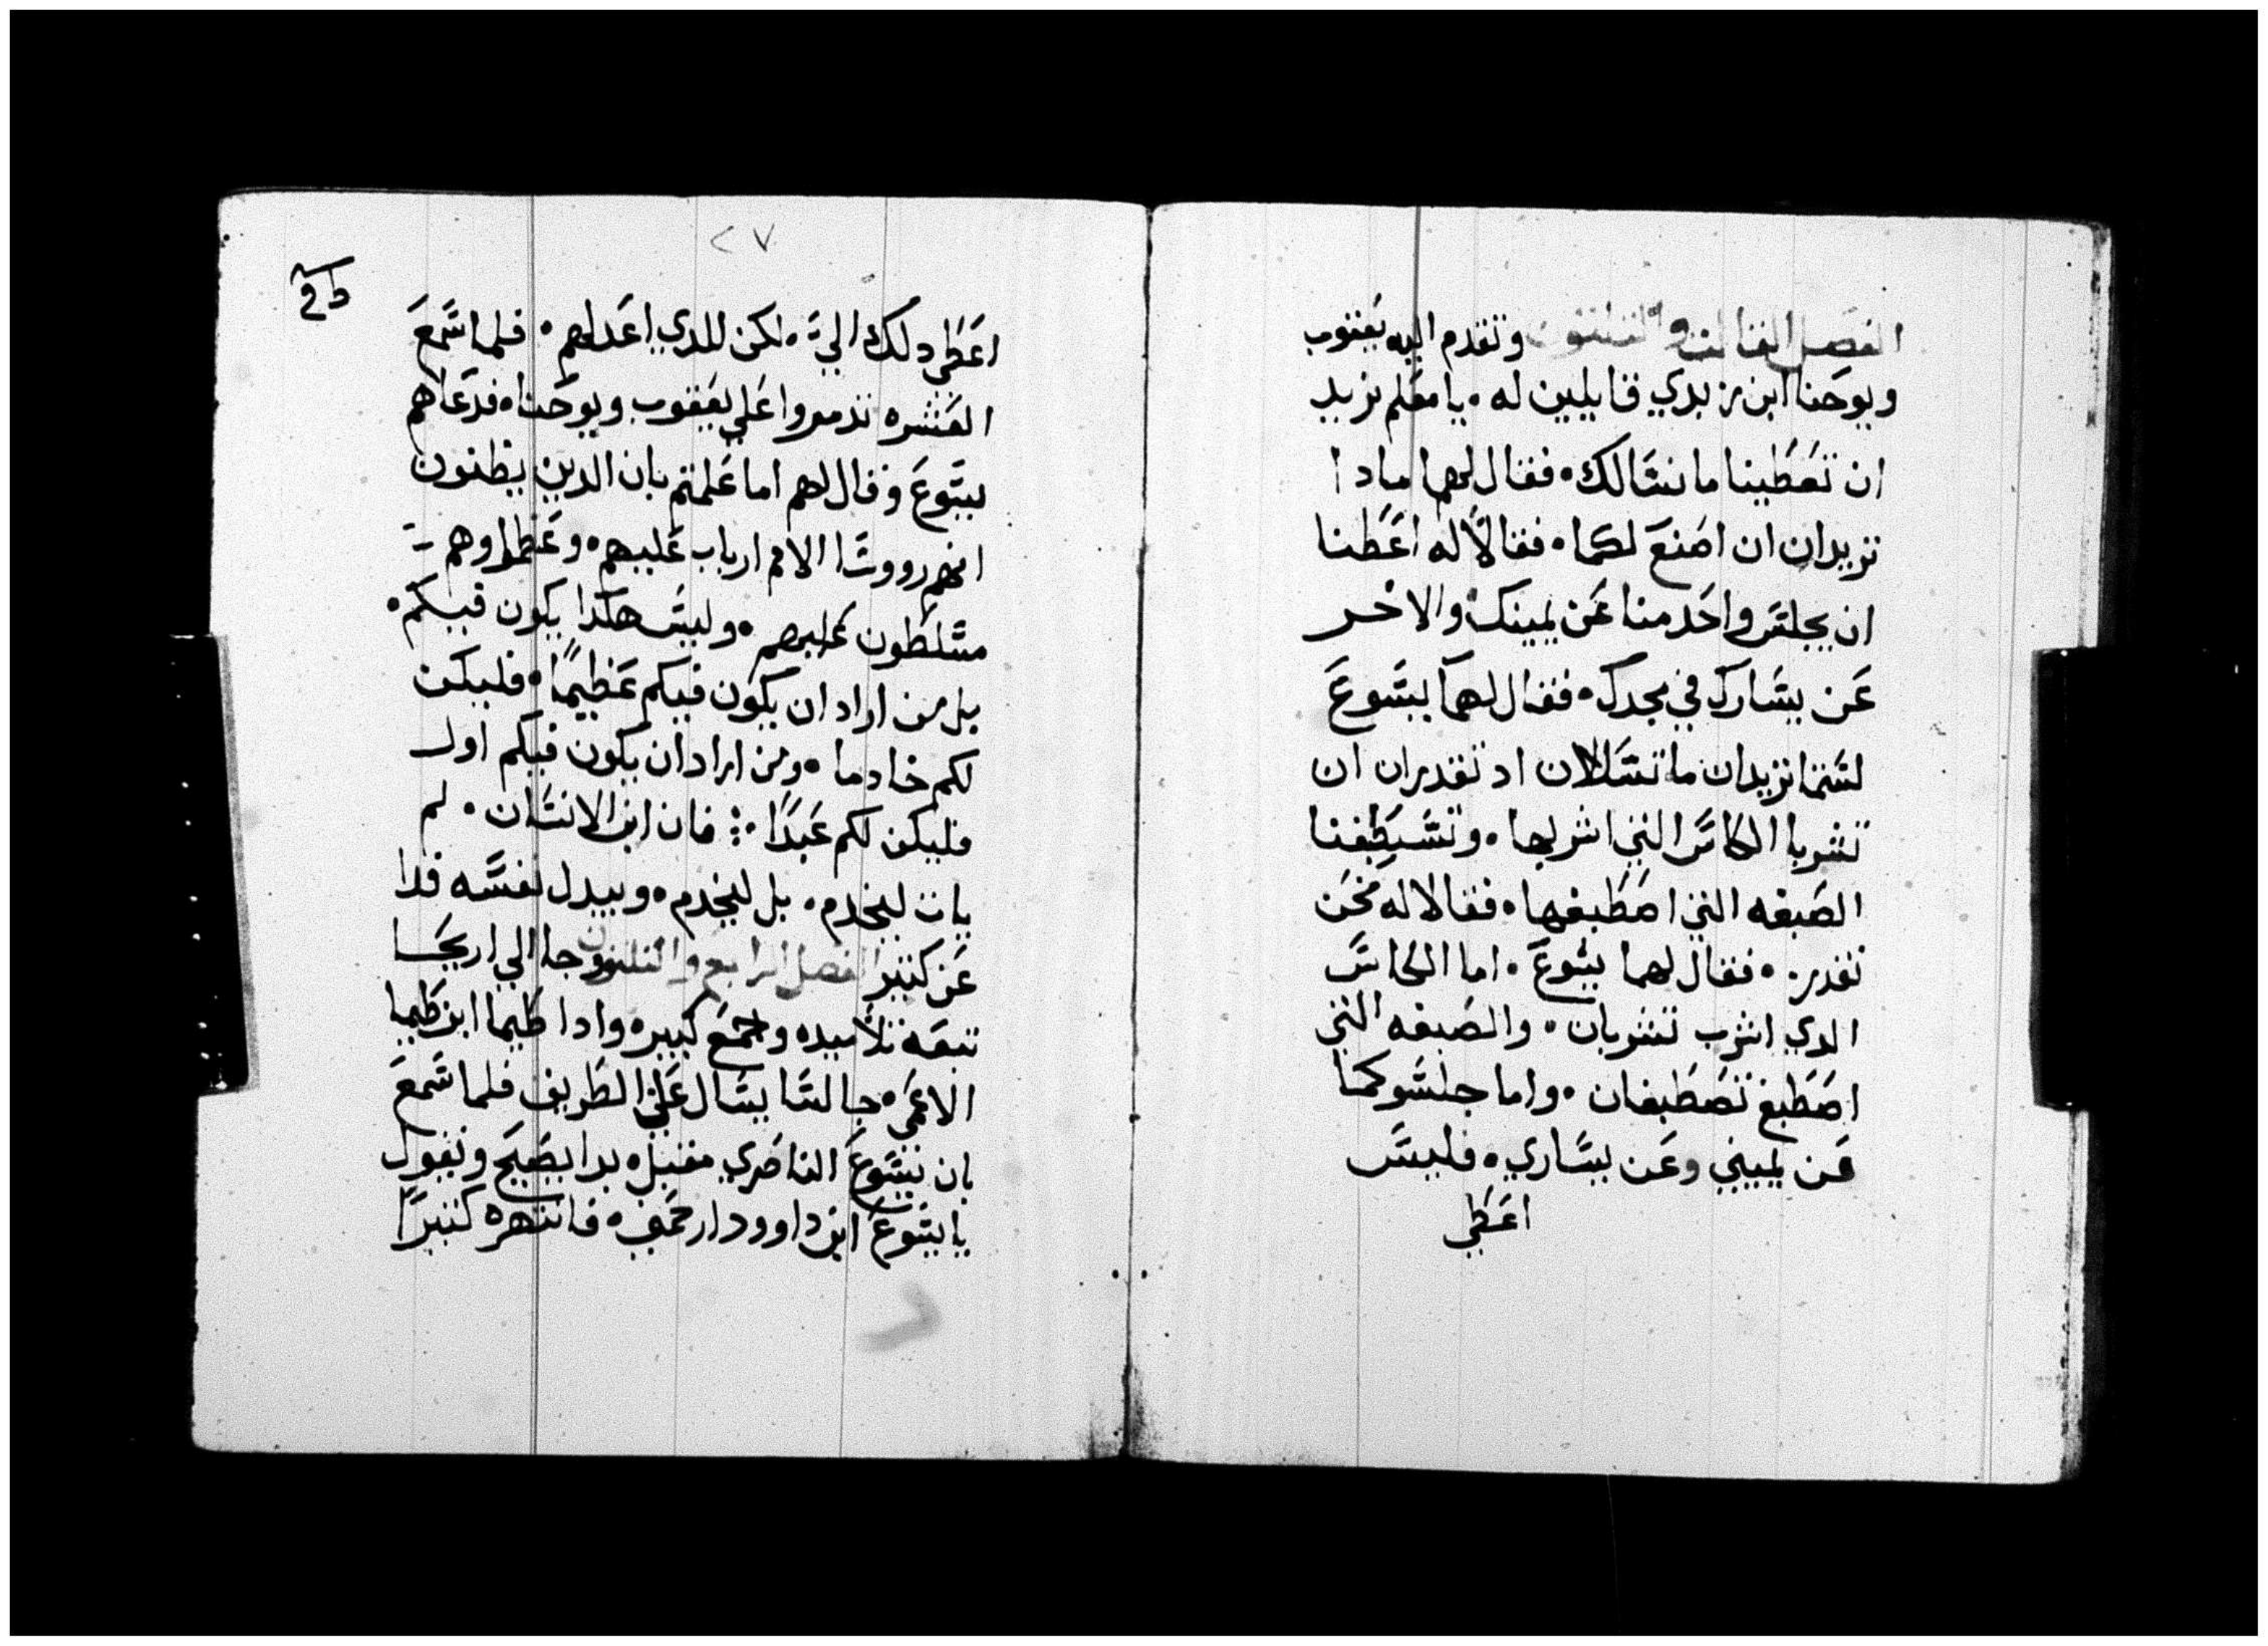 الفصل الثالت والثلثون وتقدم اليه يعقوب
ويوحنا ابن زبدي قايلين له • يا معلم نريد
ان تعطينا ما نسالك • فقال لهما مادا
تريدان ان اصنع لكما • فقالا له اعطنا
ان يجلس واحد منا عن يمينك والاخر
عن يسارك في مجدك • فقال لهما يسوع
لستما تريدان ما تسالان اد تقدران ان
تشربا الكاس التي اشربها • وتسطبغا
الصبغه التي اصطبغها • فقالا له نحن
نقدر • فقال لهما يسوع • اما الكاس
الدي اشرب تشربان • والصبغه التي
اصطبغ تصطبغان • واما جلسوكما
عن يميني وعن يساري • فليس
اعطي
٢٧
اعطي دلك الي • لكن للدي اعد لهم • فلما سمع
العشره تدمروا علي يعقوب ويوحنا • فدعاهم
يسوع وقال لهم اما علمتم بان الدين يظنون
انهم رووسا الامم ارباب عليهم • وعظماوهم
مسلطون عليهم • وليس هكدا يكون فيكم •
بل من اراد ان يكون فيكم عظيمًا • فليكن
لكم خادما • ومن اراد ان يكون فيكم اول
فليكن لكم عبدًا • فان ابن الانسان • لم
يات ليخدم • بل ليخدم • ويبدل نفسه فدا
عن كتير الفصل الرابع والثلثون وجا الي اريحا
تبعه تلاميده وجمع كبير • وادا طيما ابن طيما
الاعمي • جالسا يسال علي الطريق فلما سمع
بان يسوع الناصري مقبل • بدا يصيح ويقول
يا يسوع ابن داوود ارحمني • فانتهره كتيرًا